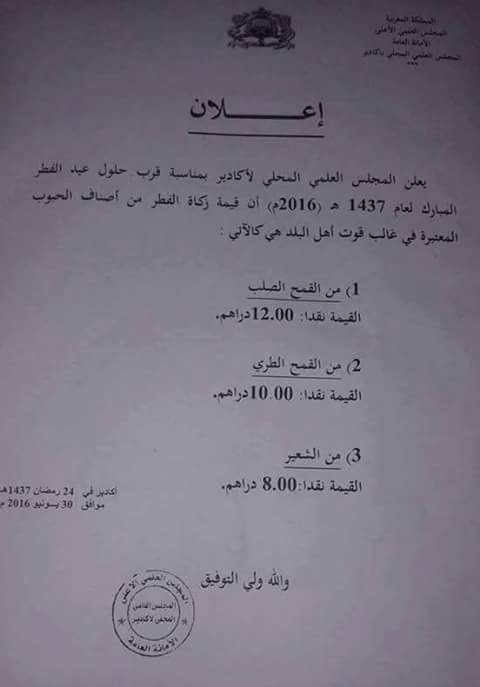 المملكة المغربية
المجلس العلمي الأعلى
الأمانة العامة
المجلس العلمي المحلي بأكادير
***
إعـــــلان
يعلن المجلس العلمي المحلي لأكادير بمناسبة قرب حلول عيد الفطر
المبارك لعام 1437 هـ (2016م) أن قيمة زكاة الفطر من أصناف الحبوب
المعتبرة في غالب قوت أهل البلد هي كالآتي :
1) من القمح الصلب
القيمة نقدا: 12.00دراهم.
2) من القمح الطري
القيمة نقدا: 10.00دراهم.
3) من الشعير
القيمة نقدا: 8.00 دراهم.
أكادير في 24 رمضان 1437هـ
موافق 30 يونيو 2016 م
والله ولي التوفيق
المجلس العلمي الأعلى
المجلس العلمي
المحلي لأكادير
الأمانة العامة